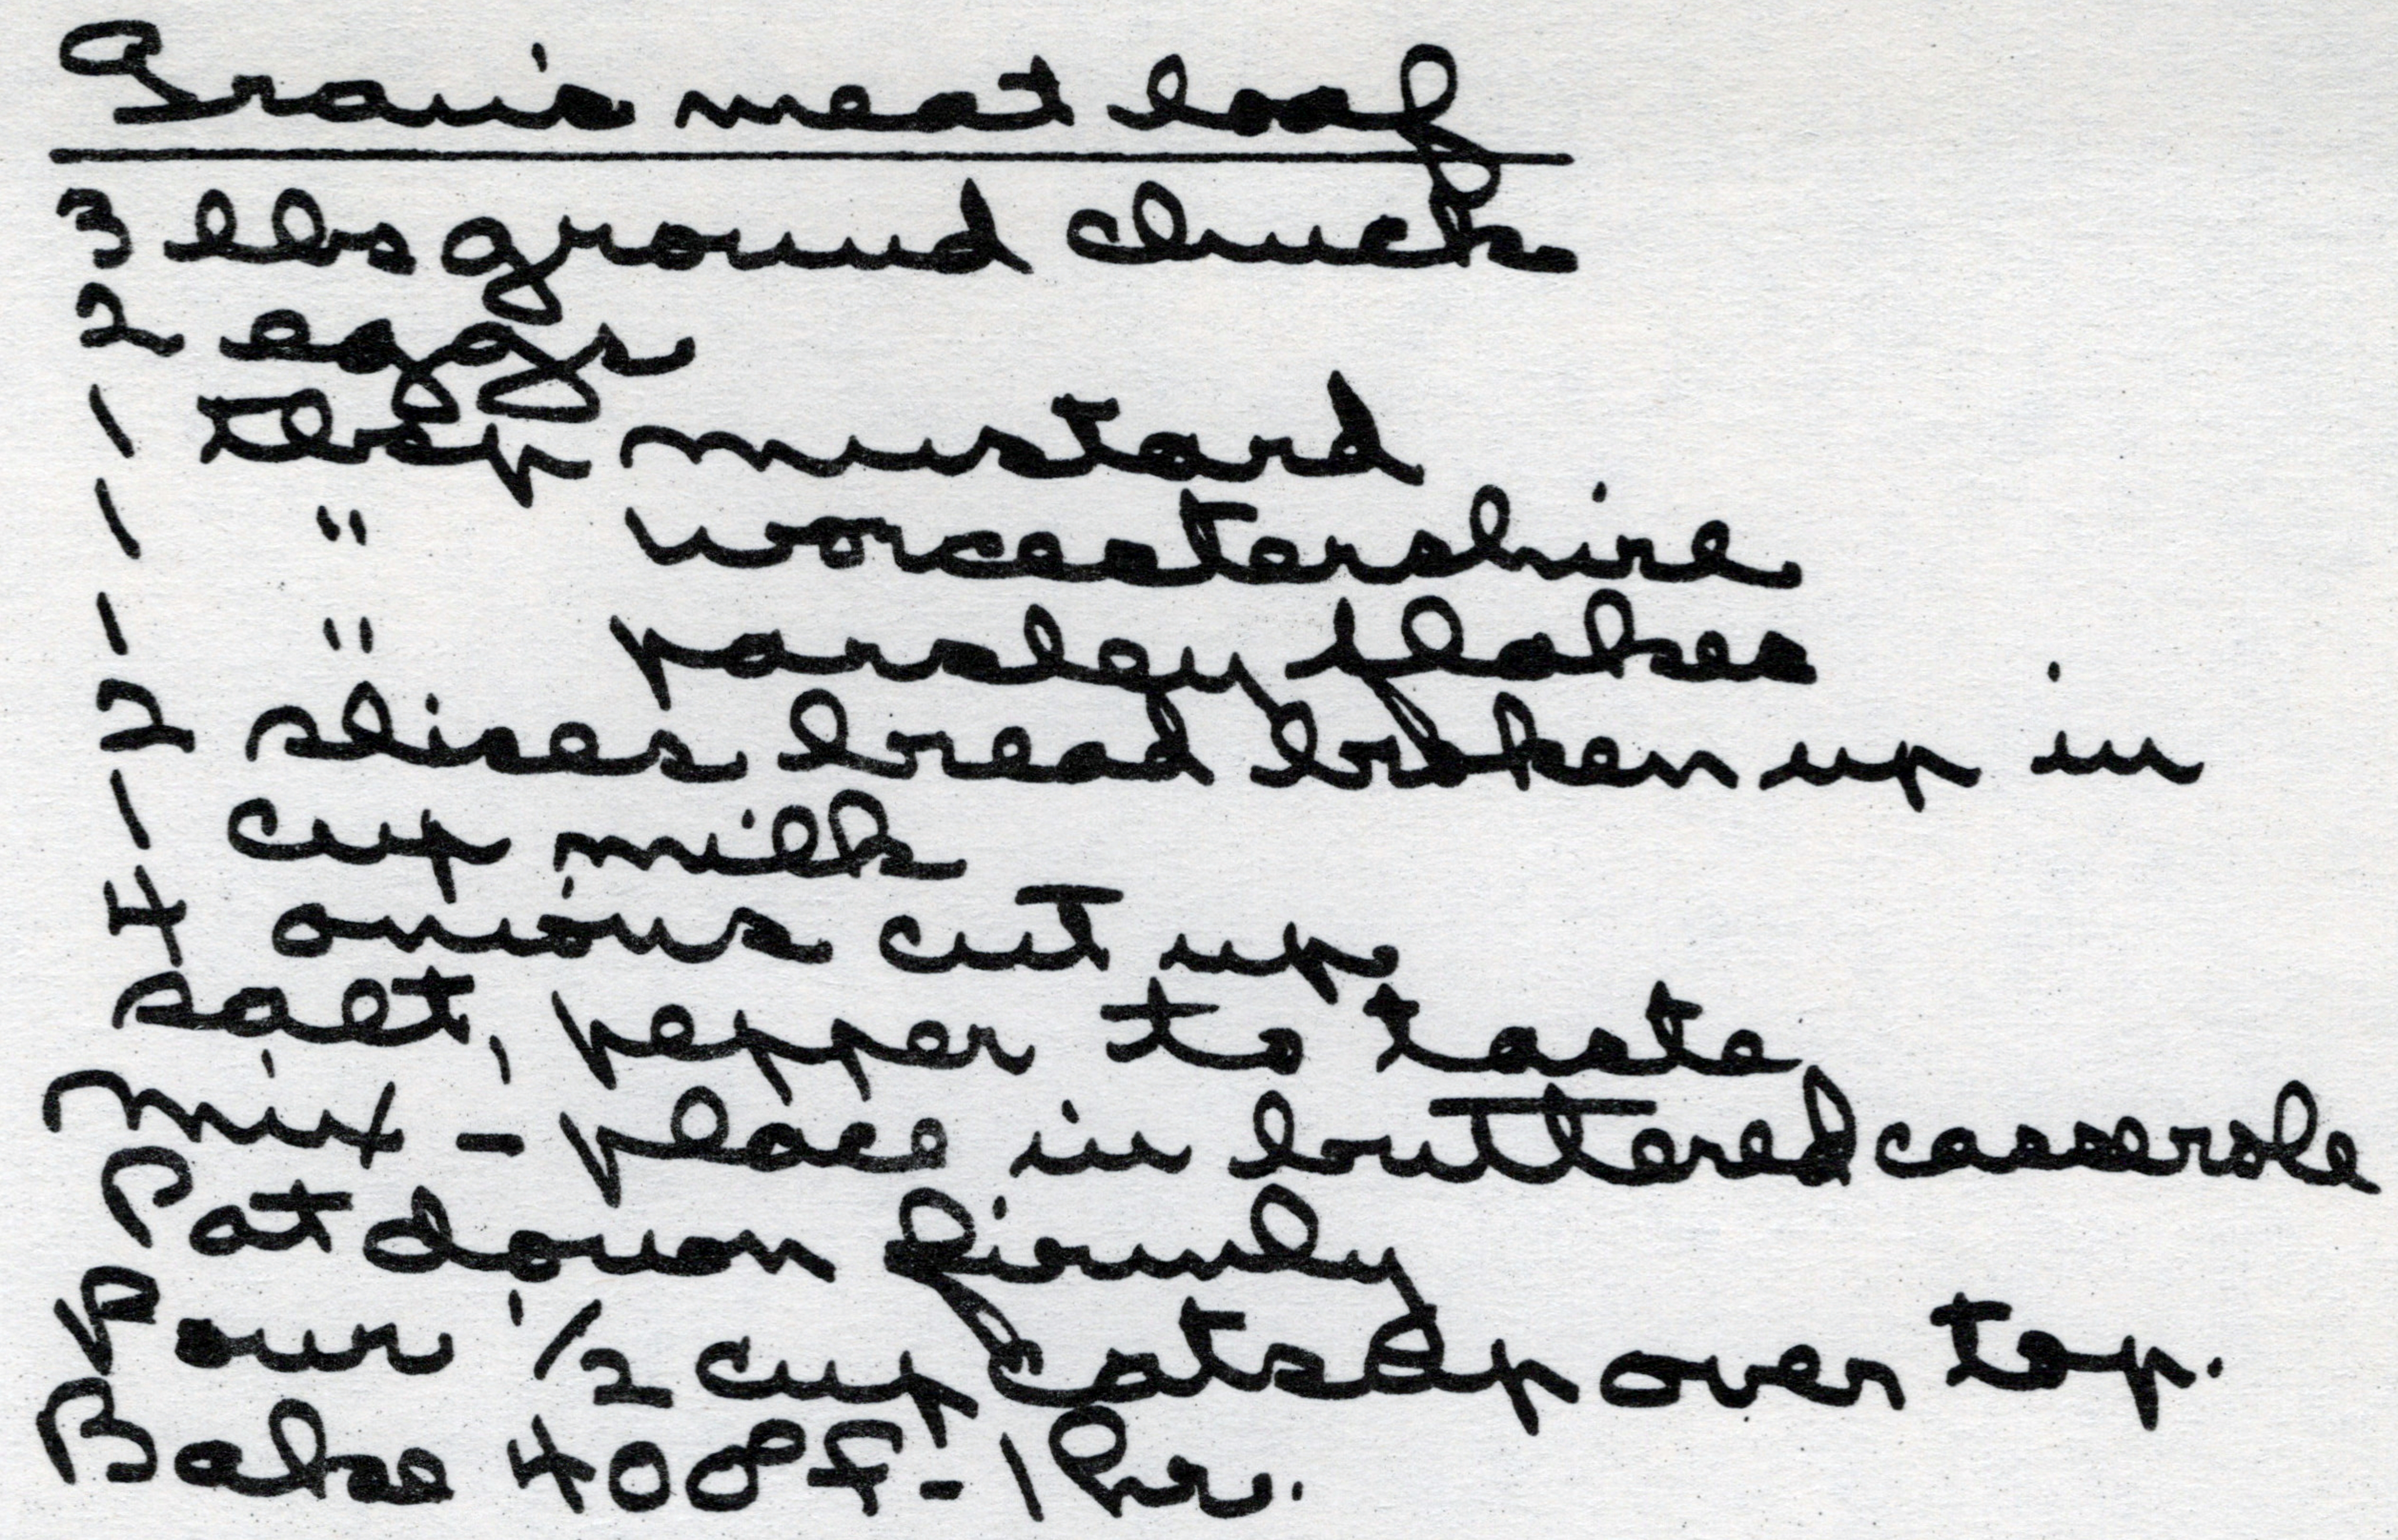 Gran's meat loaf
3 lbs ground chuck
2 eggs
1 tbsp mustard
1 " worcestershire
1 " parsley flakes
2 slices bread broken up in
1 cup milk
4 onions cut up
salt, pepper to taste
Mix - place in buttered casserole
Pat down firmly
Pour 1/2 cup catsup over top.
Bake 400° F - 1 hr.